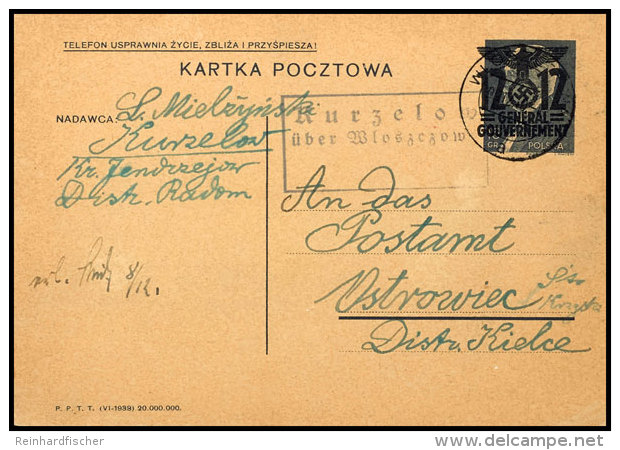 TELEFON USPRAWNIA ŻYCIE, ZBLIŻA I PRZYŚPIESZA!
KARTKA POCZTOWA
12 12
GENERAL
GOUVERNEMENT
GR. POLSKA
Kurzelow
über Wloszczow
NADAWCA: L. Mielżyńska
Kurzelow
Kr. Jendrzejow
Distr. Radom
An das
Postamt
Ostrowiec
Distr. Kielce
8/12.
P. P. T. T. (VI-1938) 20.000.000.
Reinhardfischer
delcampe.net